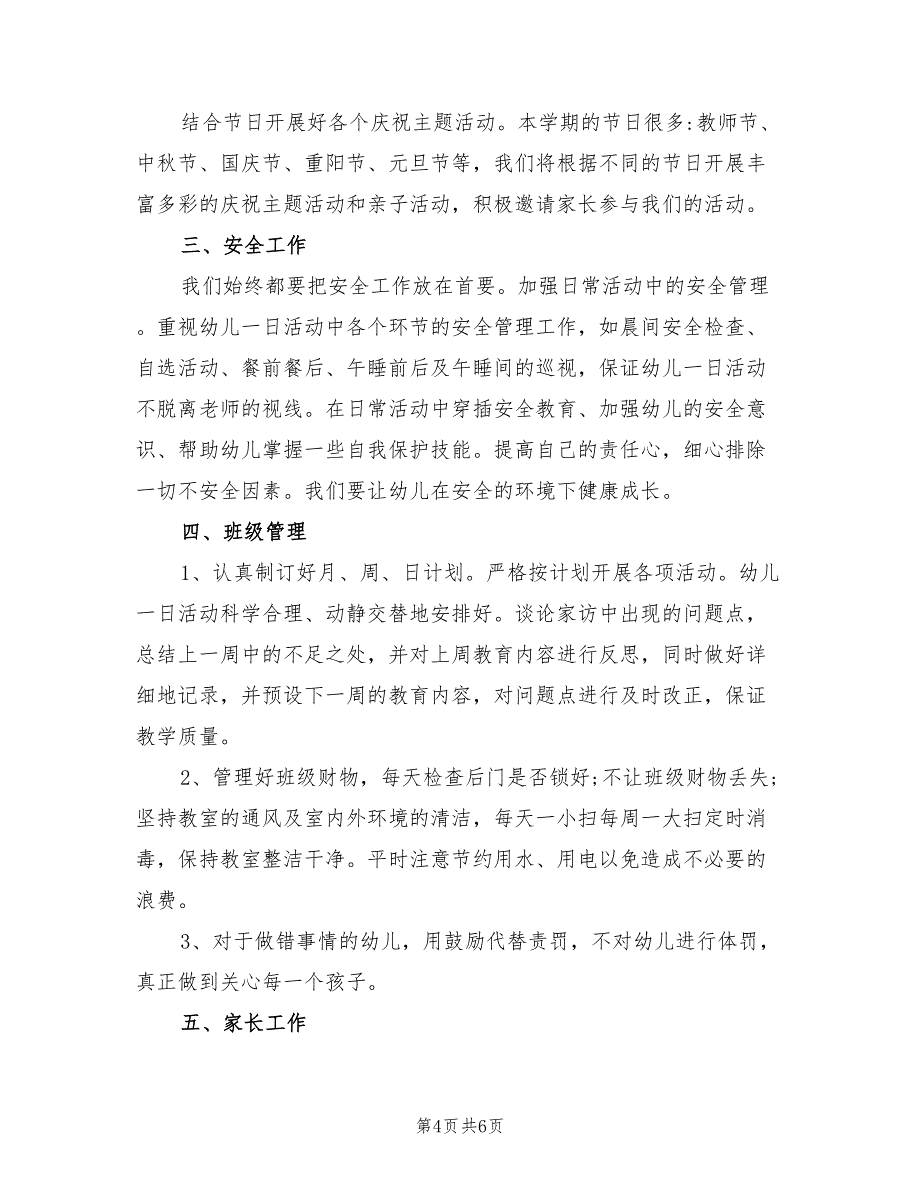 结合节日开展好各个庆祝主题活动。本学期的节日很多:教师节、
中秋节、国庆节、重阳节、元旦节等，我们将根据不同的节日开展丰
富多彩的庆祝主题活动和亲子活动，积极邀请家长参与我们的活动。
三、安全工作
我们始终都要把安全工作放在首要。加强日常活动中的安全管理
。重视幼儿一日活动中各个环节的安全管理工作，如晨间安全检查、
自选活动、餐前餐后、午睡前后及午睡间的巡视，保证幼儿一日活动
不脱离老师的视线。在日常活动中穿插安全教育、加强幼儿的安全意
识、帮助幼儿掌握一些自我保护技能。提高自己的责任心，细心排除
一切不安全因素。我们要让幼儿在安全的环境下健康成长。
四、班级管理
1、认真制订好月、周、日计划。严格按计划开展各项活动。幼儿
一日活动科学合理、动静交替地安排好。谈论家访中出现的问题点，
总结上一周中的不足之处，并对上周教育内容进行反思，同时做好详
细地记录，并预设下一周的教育内容，对问题点进行及时改正，保证
教学质量。
2、管理好班级财物，每天检查后门是否锁好;不让班级财物丢失;
坚持教室的通风及室内外环境的清洁，每天一小扫每周一大扫定时消
毒，保持教室整洁干净。平时注意节约用水、用电以免造成不必要的
浪费。
3、对于做错事情的幼儿，用鼓励代替责罚，不对幼儿进行体罚，
真正做到关心每一个孩子。
五、家长工作
第4页 共6页